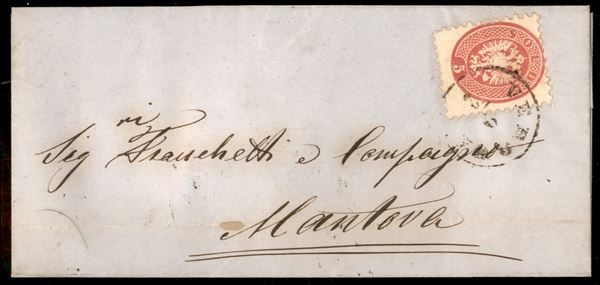 5 SOLDI
Sig.ri Franchetti e Compagni
Mantova